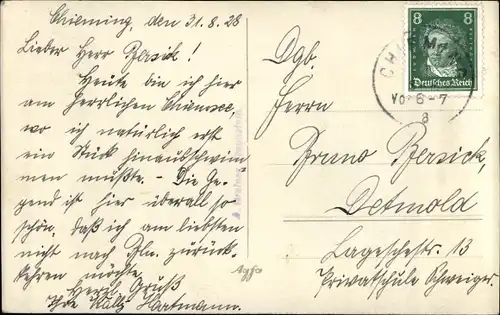 Chieming, den 31.8.28
Lieber Herr Bersick!
Heute bin ich hier
am herrlichen Chiemsee,
wo ich natürlich erst
ein Stück hinausschwim
men müßte. - Die Ge-
gend ist hier überall so
schön, daß ich am liebsten
nicht nach Bln. zurück-
kehren möchte.
Herzl. Gruß
Ihre Hartmann.
Agfa
8 8
Deutsches Reich
CHI
Vo 6-7
8
Dgb.
Herrn
Bruno Bersick,
Detmold
Lageschestr. 13
Privatschule Schweiger.